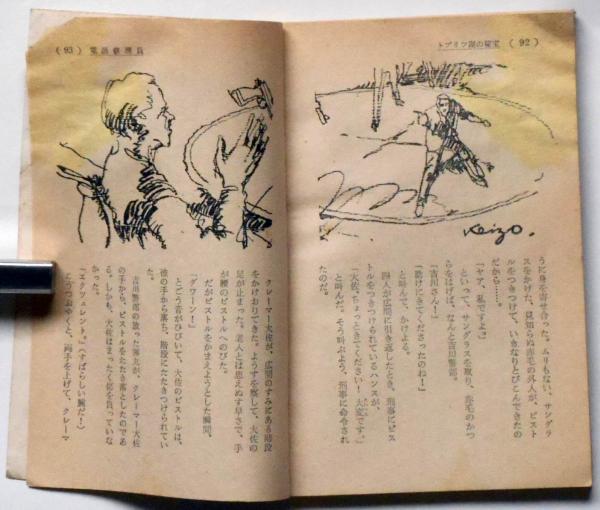 トプリツ湖の秘宝 (92)
Keizo.
うに身を寄せ合った。ムリもない、サングラ
スをかけた、見知らぬ赤毛の外人が、ピスト
ルをつきつけて、いきなりとびこんできたの
だから……。
「ヤァ、私ですよ。」
といって、サングラスを取り、赤毛のかつ
らをはずせば、なんと吉川警部。
「吉川さん！」
「助けにきてくださったのね！」
と叫んで、かけよる。
四人が広間に引き返したとき、刑事にピス
トルをつきつけられているハンスが、
「大佐、ちょっときてください！ 大変です。」
と叫んだ。そう叫ぶよう、刑事に命令され
たのだ。
(93)
クレーマー大佐が、広間のすみにある階段
をかけおりてきた。ようすを察して、大佐の
足が止まった。老人とは思えぬ早さで、手
が腰のピストルへのびた。
だがピストルをかまえようとした瞬間、
「ダワーン！」
とどう音がひびいて、大佐のピストルは、
彼の手から落ち、階段にたたきつけられてい
た。
吉川警部の放った弾丸が、クレーマー大佐
の手から、ピストルをたたき落としたのであ
る。しかも、大佐はまったく傷を負っていな
かった。
「エクツェレント。」（すばらしい腕だ！）
こうつぶやくと、両手を上げて、クレーマ